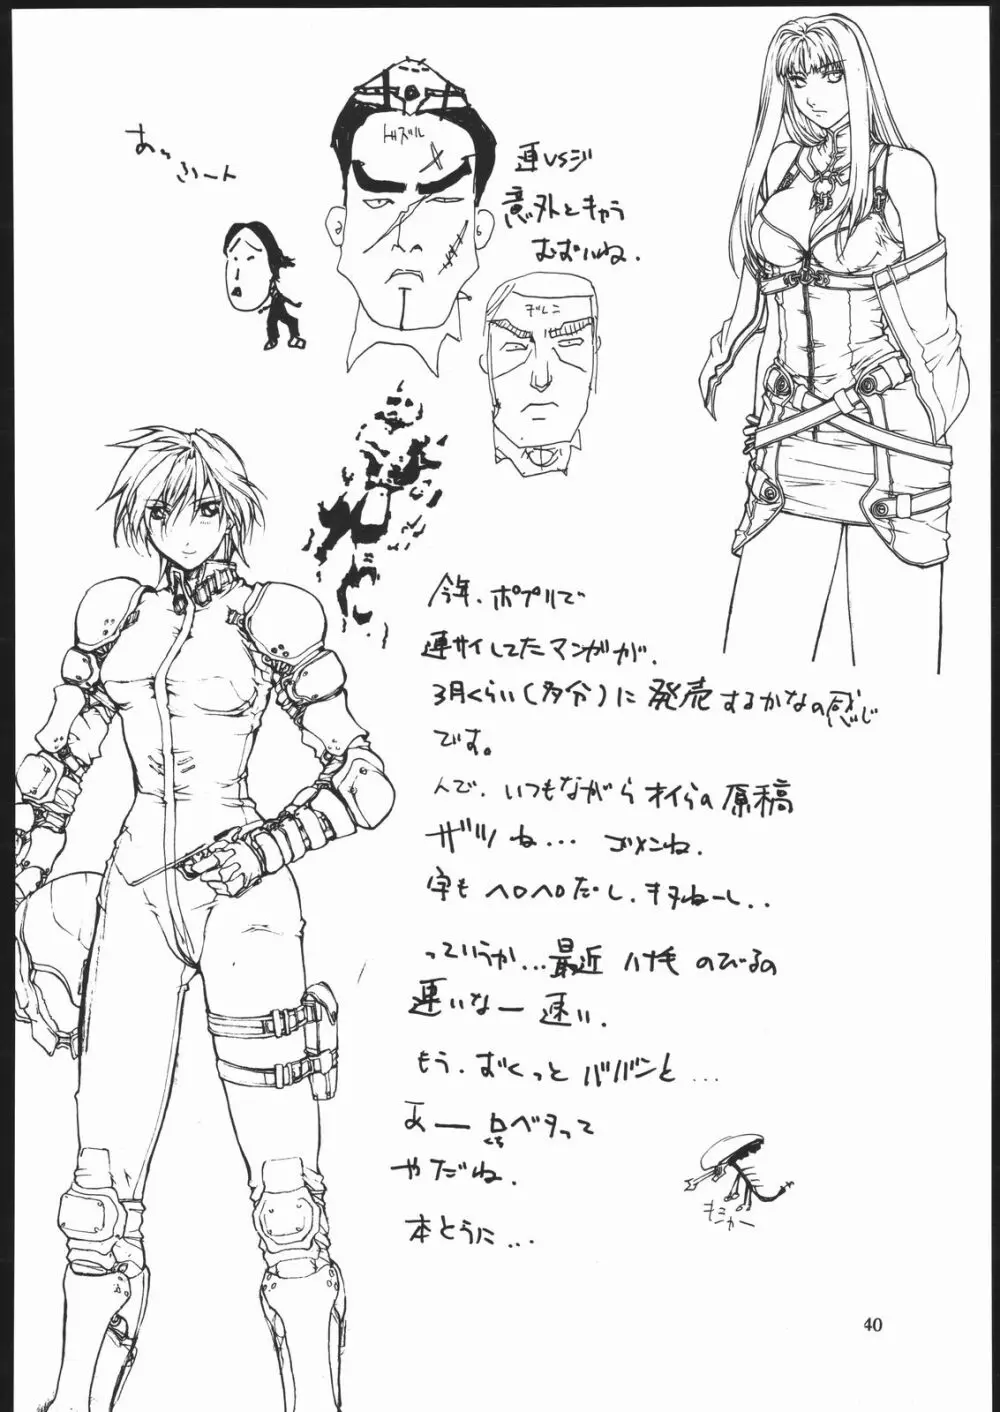 ドズル
連VSジ
意外とキャラ
むずいね.
ギレン
今年、ポプリで
連サイしてたマンガが、
3月くらい(多分)に発売するかなの感じ
です。
んで、いつもながらオイらの原稿
ザツね... ゴメンね.
字もヘロヘロだし、キタねーし..
っていうか...最近ハナ毛のびるの
速いなー 速い.
もう、
あー 口ベタって
くち
やだね.
本とうに...
40